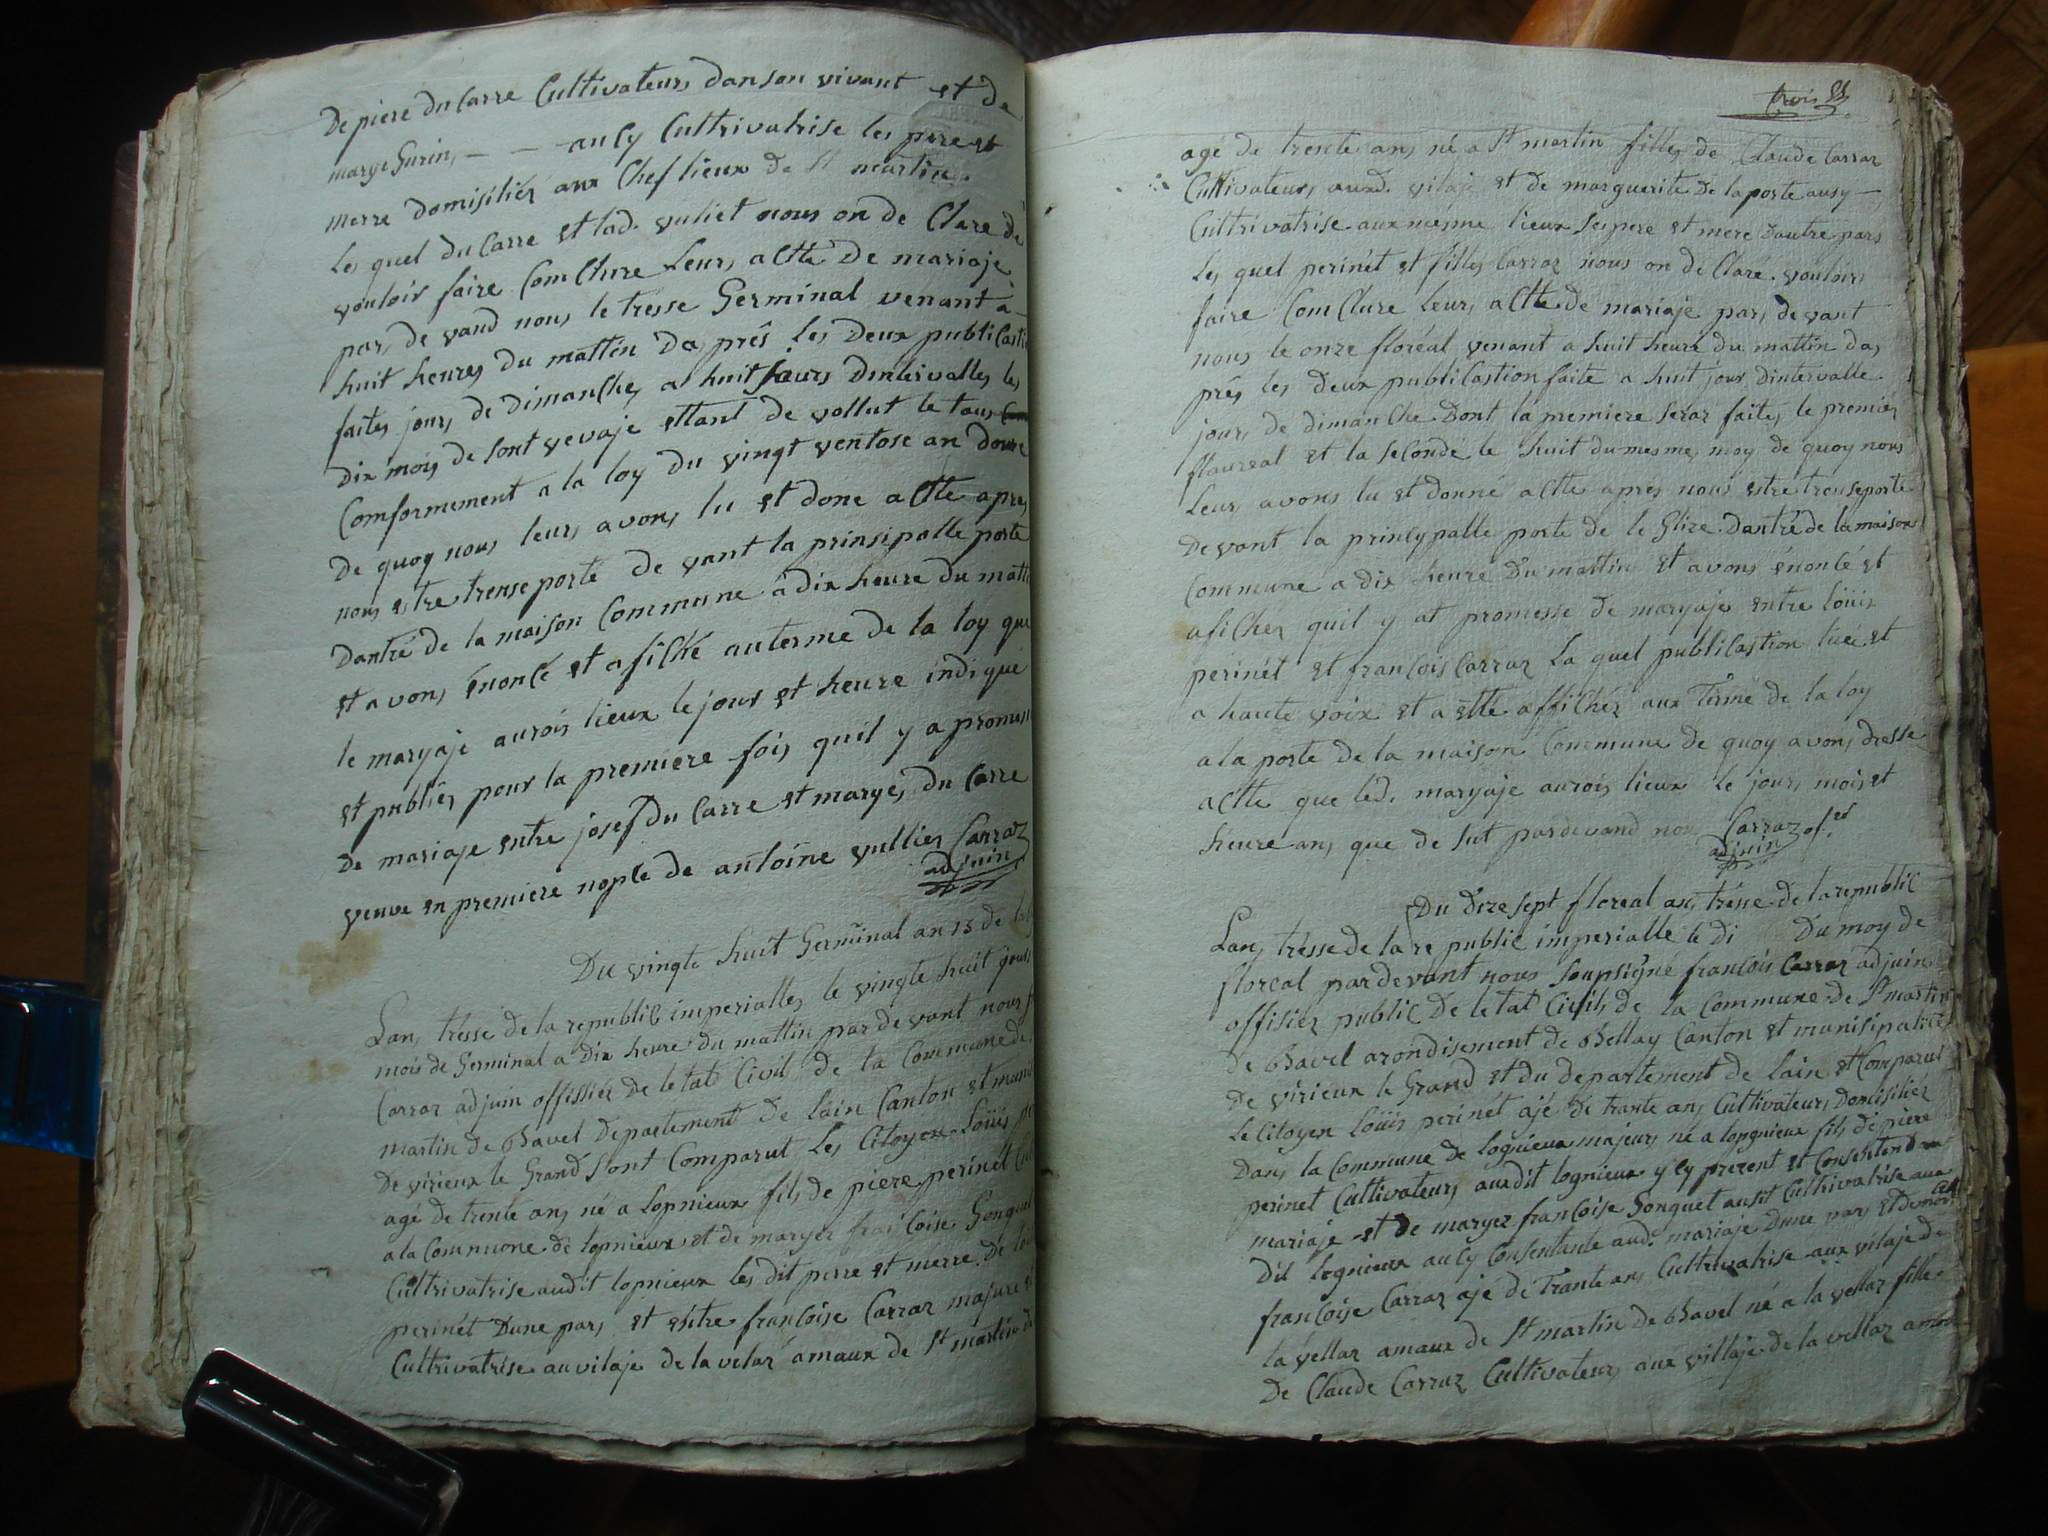 De piere du Carre Cultivateurs danson vivant et de
marye Gurin, — — aucy Cultrivatrise les pere et
merre domisiliés aux Cheflieux de St martin.
Les quel du Carre et lad. vuliet nous on de Clare de
vouloir faire Comclure Leurs actte de mariaje
par, de vand nous le tresse Germinal venant a
huit heures du mattin Da prés les Deux publicasti
faites jours de dimanches a huit jours Dintervalles les
dix mois de sont vevaje ettant de vollut le tous
Comformement a la loy du vingt ventose an douze
De quoy nous leurs avons lu et done actte apres
nous estre trenseporté de vant la prinsipalle porte
Dantré de la maison Commune a dix heure du matti
et avons énoncé et afiché auterme de la loy que
le maryaje aurois lieux le jour et heure indiqué
et publiés pour la premiere fois quil y a promess
de mariaje entre josef Du Carre et marye, du Carre
veuve en premiere nopce de antoine vullier Carraz
adjuin
Du vingte huit Germinal an 13 de la
Lan, tresse de la republic imperialles le vingte huit jour
mois de Germinal a Dix heure du mattin par de vant nous f
Carraz adjuin offissier de letat Civil de la Commune de
martin de Bavel Departement de Lain Canton et muni
De virieux le Grand Sont Comparut Les Citoyen Loüis pe
agé de trente ans né a Lopnieux fils de piere perinét Cul
a la Commune de lopnieux et de maryer francoise Gonguet
Cultrivatrise audit lopnieux les dit perre et merre De lo
perinét Dune pars et estre francoise Carraz majure
Cultrivatrise au vilaje de la velaz amaux de St martin de
trois
agé de trente ans né a St martin filles de Claude Carraz
Cultivateurs aud. vilaje et de marguerite De la porte ausy —
Cultrivatrise aux mesme lieux Ses pere et mere Dautre pars
Les quel perinét et filles Carraz nous on de Claré vouloirs
faire Comclure Leurs actte de mariaje pars de vant
nous le onze floréal venant a huit heure du mattin da,
prés les deux publicastion faite a huit jour dintervalle
jours de dimanche Dont la premiere seraz faites le premier
flaureal et la seconde le huit du mesme moy de quoy nous
Leurs avons lu et donné actte aprés nous estre trenseporté
Devant la princypalle porte de le Glize Dantré de la maison
Commune a dix heure Du mattin et avons énoncé et
afiches quil y at promesse de maryaje entre loüis
perinét et francois Carraz La quel publicastion lué et
a haute voix et a etté affichéz aux Terme de la loy
a la porte de la maison Commune de quoy avons dresse
actte que led. maryaje aurois lieux Le jours mois et
heure ans que de sut pardevand nou Carraz of.
adjuin
Du dize sept floreal an, trésse de la republic
Lan, trésse de la re public imperialle le di Du moy de
floreal pardevant nous soupsigné francois Carraz adjuin
offisier public De letat Civils de la Commune de St martin
de Bavel arondisement de Bellay Canton et munisipalité
De virieux le Grand et du departement de Lain est Comparut
Le Citoyen Loüis perinét ajé de trante ans Cultivateurs Domisiliéz
Dans la Commune de lognieux majeurs né a lopgnieux fils de piere
perinet Cultivateurs audit lognieux y cy present et Consentend
mariaje et de maryez francoise Gonguet ausit Cultrivatrise aux
dit lognieux aucy Consentante aud. mariaje Dune pars et
francoise Carraz ajé de Trante ans Cultrivatrise aux vilaje de
la vellaz amaux de St martin de Bavel né a la vellaz fille
De Claude Carraz Cultivateurs aux villaje de la vellaz amau